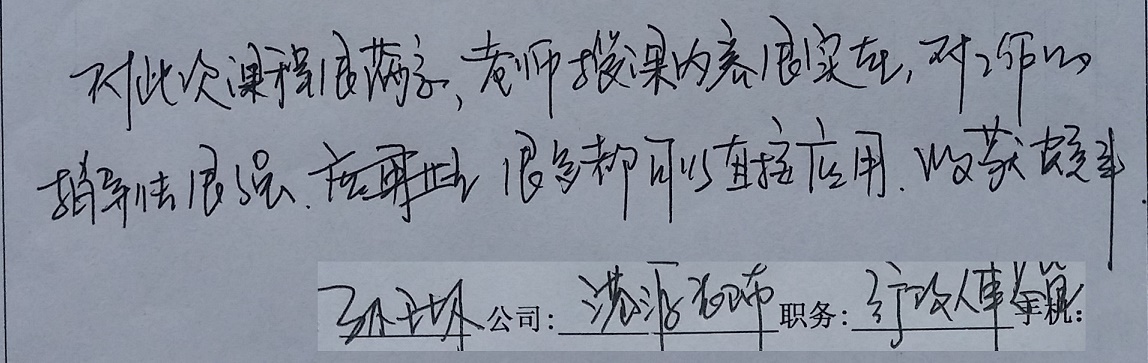 对此次课程很满意,老师授课内容很实在,对工作的
指导性很强.应用性 很多都可以直接应用.收获颇丰.
公司: 港源幕墙 职务: 行政人事经理